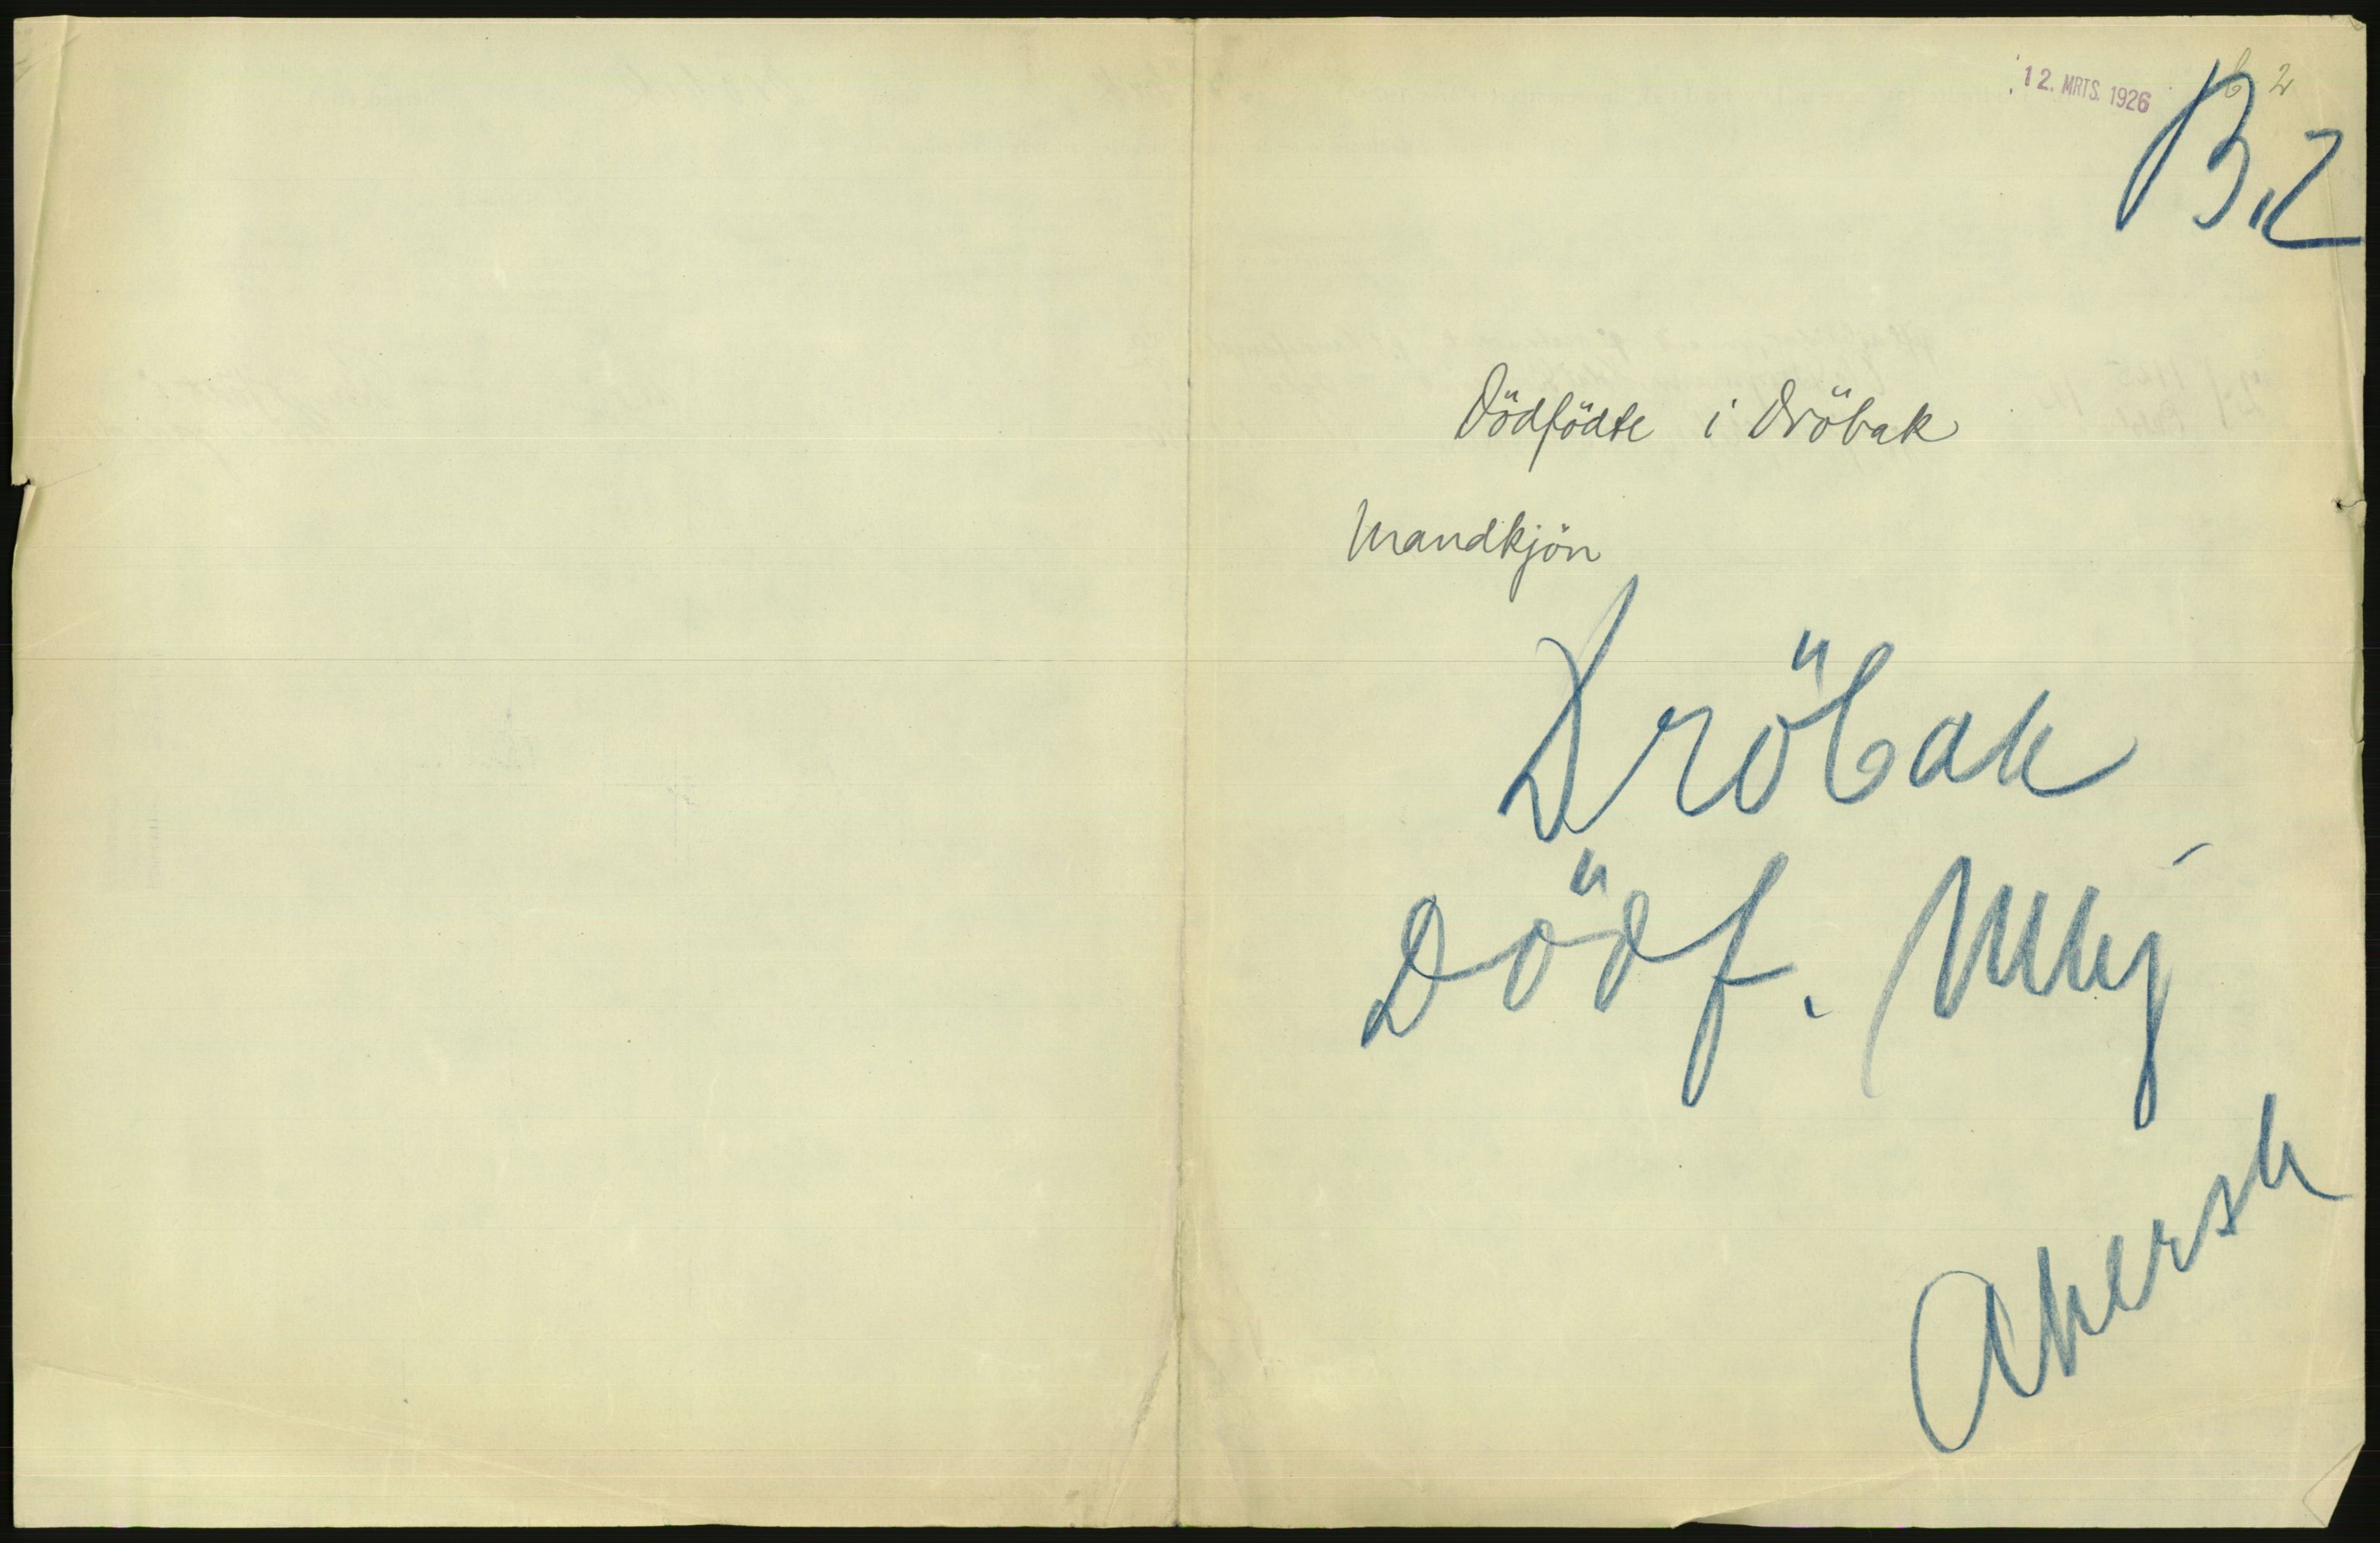 12. MRTS. 1926
b 2
B. 2
Dödfödte i Dröbak
Mandkjön
Dröbak
Dödf. Mkj
Akersh